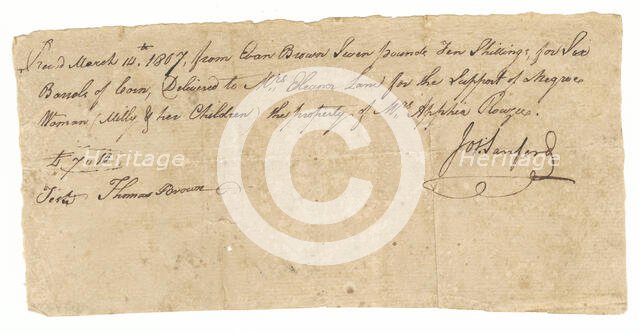 Rec'd March 14th 1807, from Evan Brown Seven pounds Ten Shillings, for Six
Barrels of Corn, (Delivered to Mrs Eleanor Lane) for the Support of a Negroe
Woman (Milly & her Children) the property of Mrs Apphia Rouzee.
Jos: Sanford
£ 7.10.
Test Thomas Brown
Heritage
Heritage
Heritage
Heritage
C